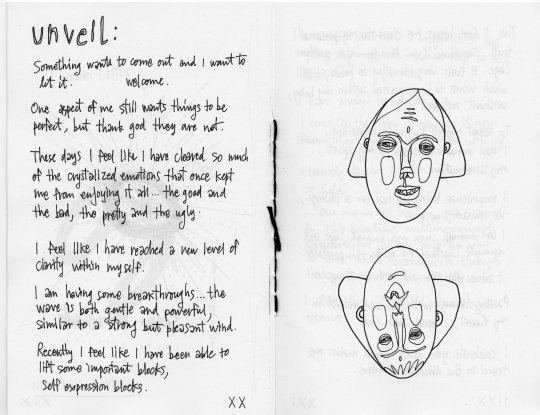 unveil:
Something wants to come out and I want to
let it. welcome.
One aspect of me still wants things to be
perfect, but thank god they are not.
These days I feel like I have cleared so much
of the crystallized emotions that once kept
me from enjoying it all... the good and
the bad, the pretty and the ugly.
I feel like I have reached a new level of
clarity within myself.
I am having some breakthroughs... the
wave is both gentle and powerful,
similar to a strong but pleasant wind.
Recently I feel like I have been able to
lift some important blocks,
self expression blocks.
XX